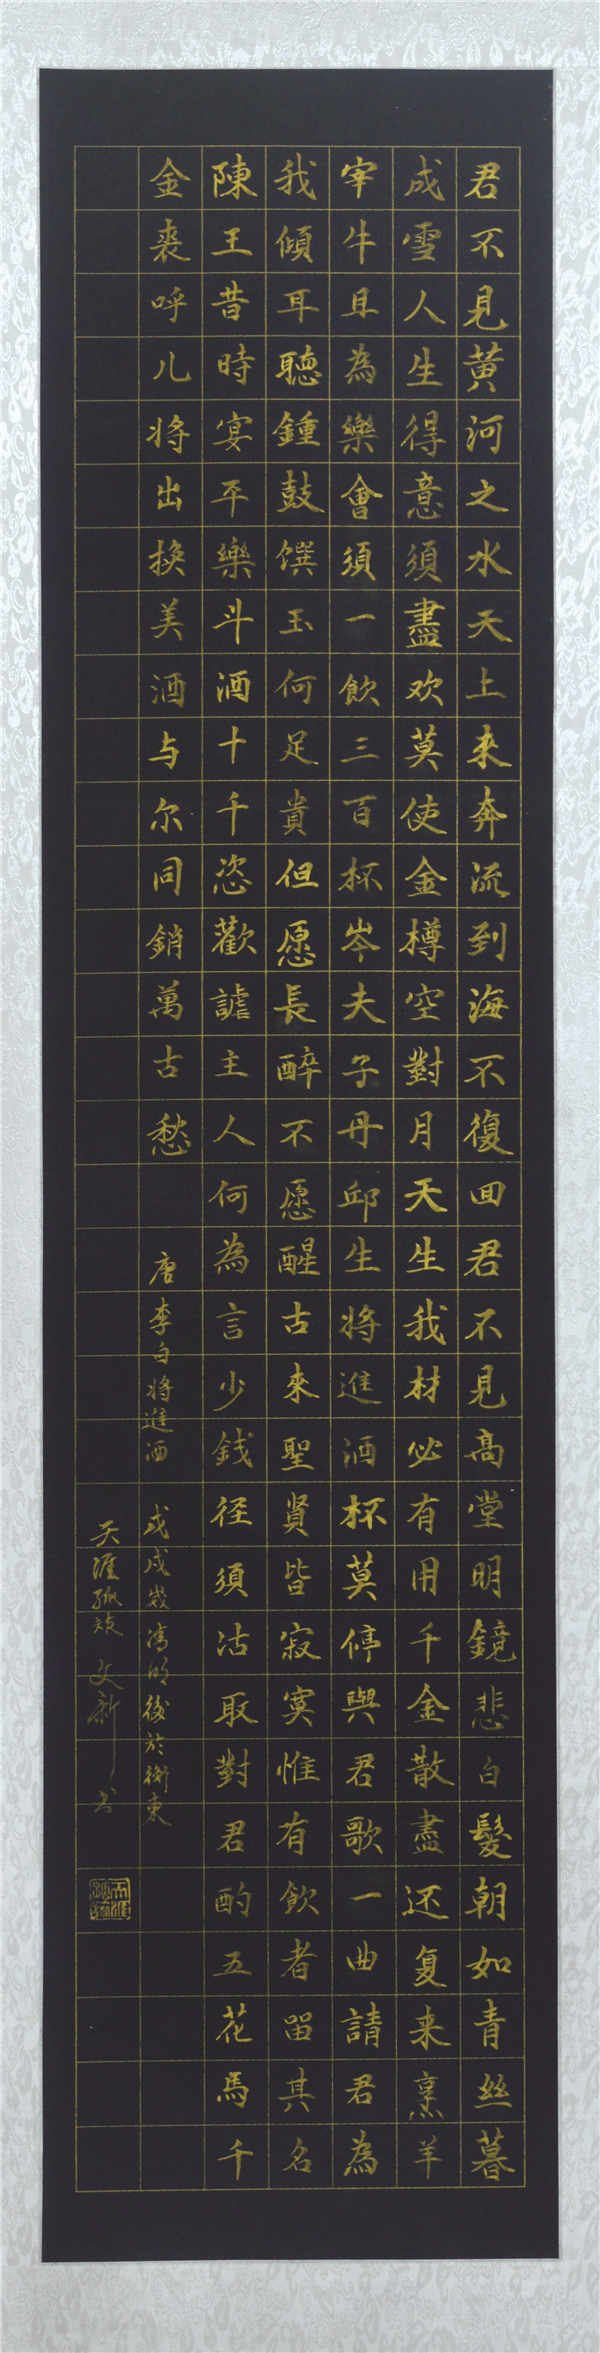 君不見黃河之水天上来奔流到海不復回君不見高堂明鏡悲白髮朝如青丝暮
成雪人生得意須盡欢莫使金樽空對月天生我材必有用千金散盡还复来烹羊
宰牛且為樂會須一飲三百杯岑夫子丹邱生将進酒杯莫停與君歌一曲請君為
我傾耳聽鍾鼓馔玉何足貴但愿長醉不愿醒古來聖賢皆寂寞惟有飲者留其名
陳王昔時宴平樂斗酒十千恣歡謔主人何為言少錢径須沽取對君酌五花馬千
金裘呼儿将出换美酒与尔同銷萬古愁
唐李白将進酒 戊戌歲清明後於衡東
天涯孤旅文新书